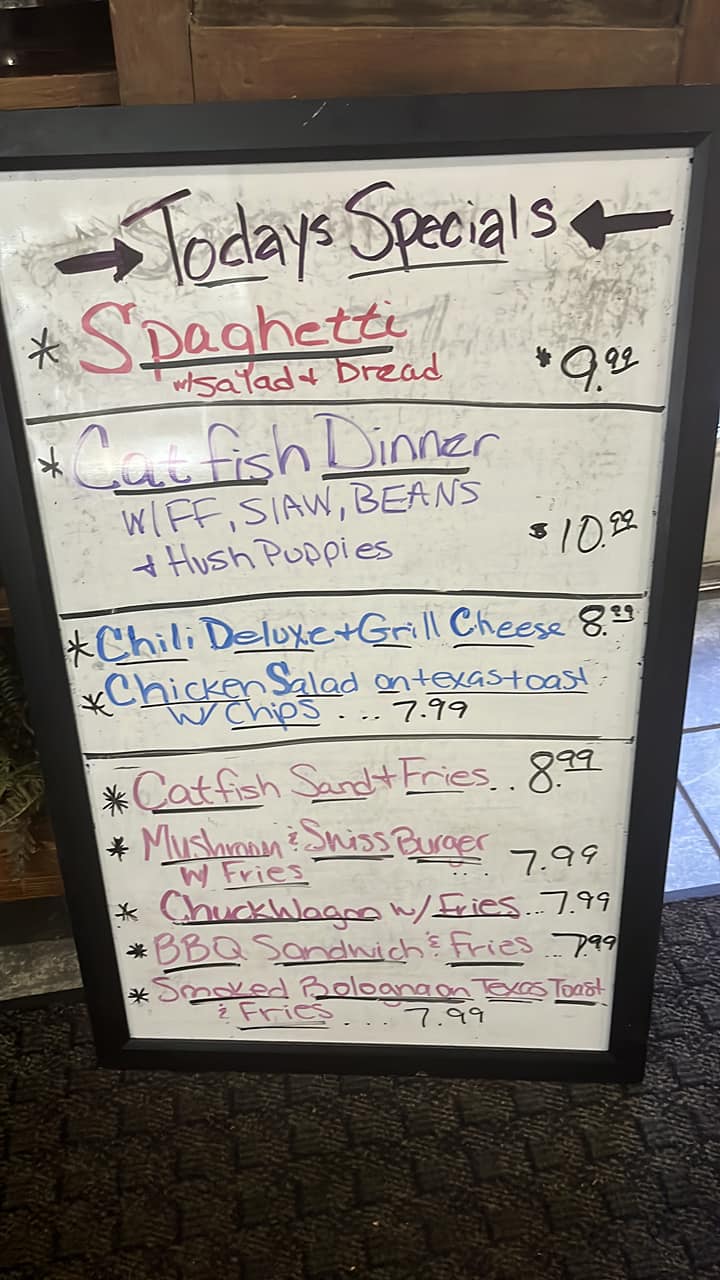 → Todays Specials ←
* Spaghetti
w/salad & bread $9.99
* Catfish Dinner
W/FF, SlAW, BEANS
& Hush Puppies $10.99
* Chili Deluxe + Grill Cheese 8.99
* Chicken Salad on texas toast
w/ Chips ... 7.99
* Catfish Sand + Fries.. 8.99
* Mushroom & Swiss Burger
w/ Fries .... 7.99
* ChuckWagon w/ Fries...7.99
* BBQ Sandwich & Fries ...7.99
* Smoked Bologna on Texas Toast
& Fries .... 7.99